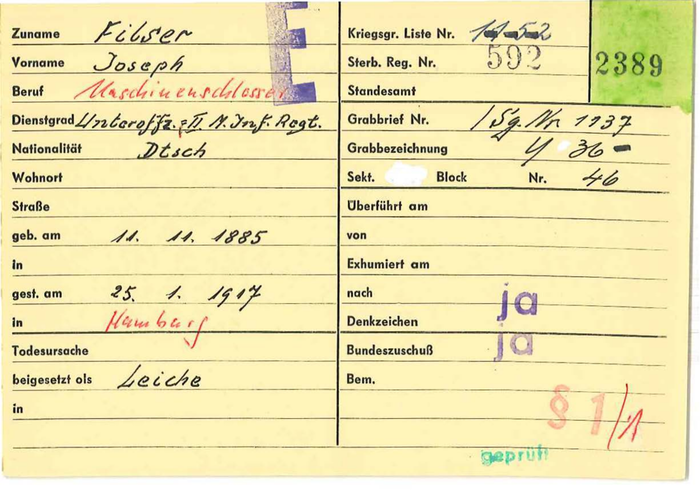 E
Zuname Filser
Vorname Joseph
Beruf Maschinenschlosser
Dienstgrad Unteroffz. II. Inf. Regt.
Nationalität Dtsch
Wohnort
Straße
geb. am 11. 11. 1885
in
gest. am 25. 1. 1917
in Hamburg
Todesursache
beigesetzt als Leiche
in
Kriegsgr. Liste Nr. 11-52
Sterb. Reg. Nr. 592
2389
Standesamt
Grabbrief Nr. / Sg. Nr 1137
Grabbezeichnung Y 36-
Sekt. Block Nr. 46
Überführt am
von
Exhumiert am
nach ja
Denkzeichen
Bundeszuschuß ja
Bem.
§ 1/1
geprüft